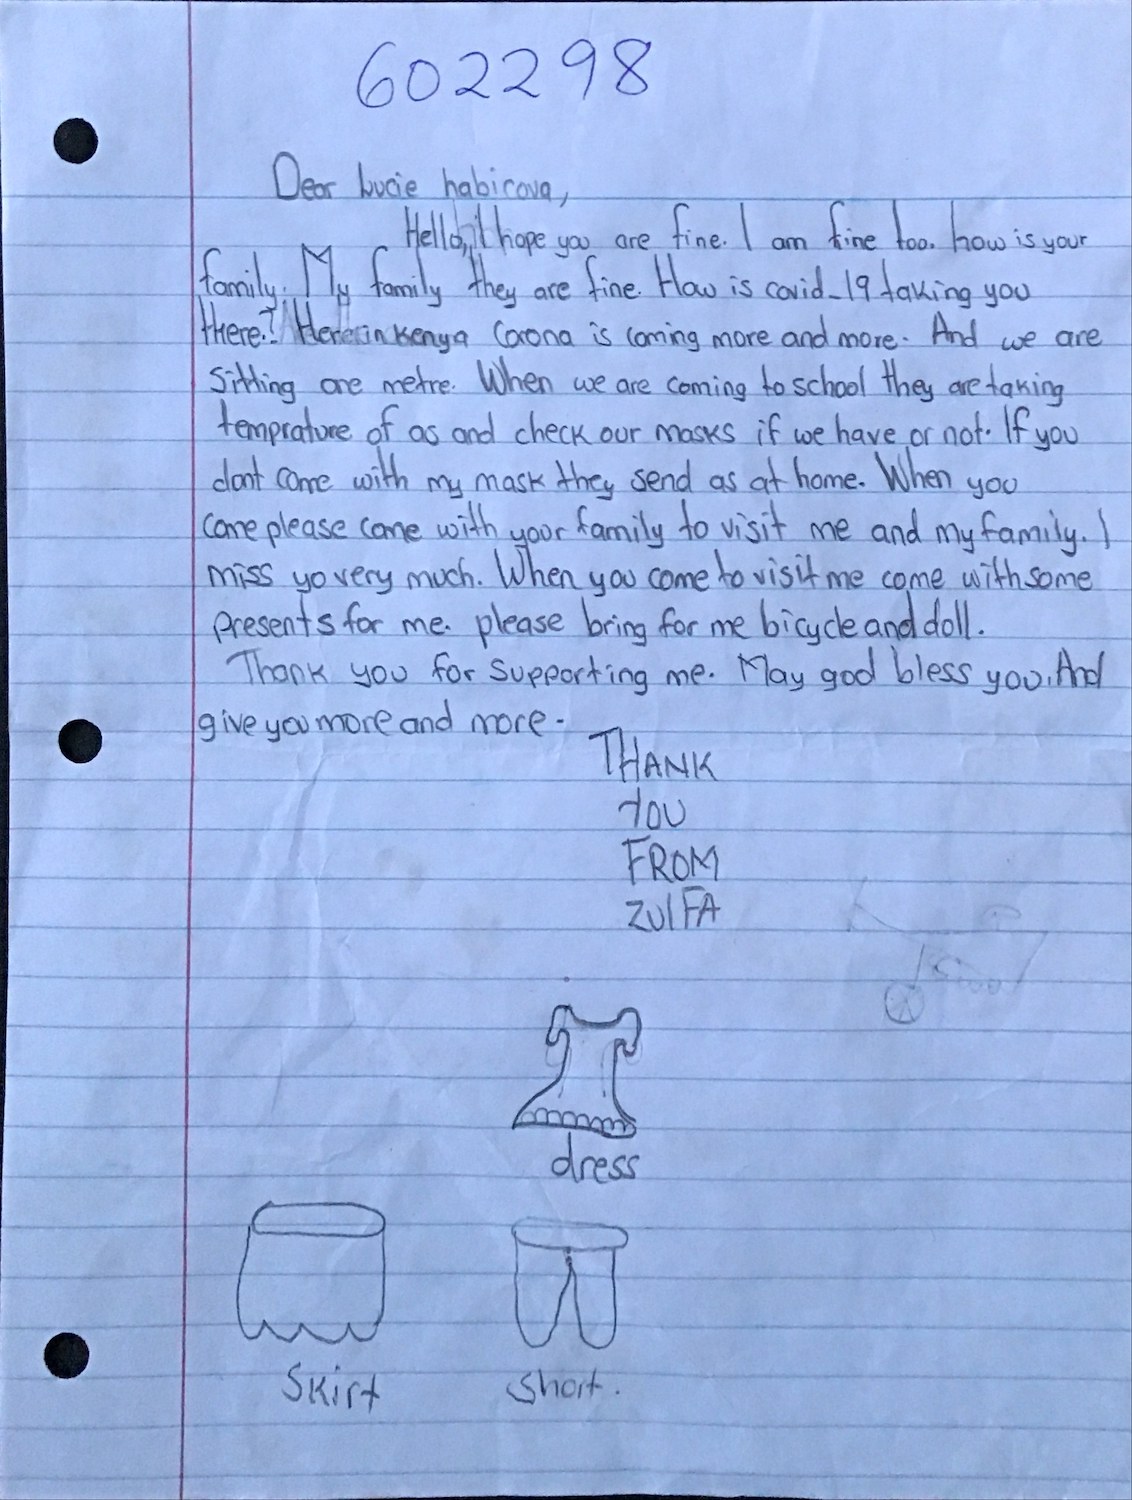 602298
Dear Lucie habirova,
Hello, I hope you are fine. I am fine too. how is your
family. My family they are fine. How is covid-19 taking you
there? Here in kenya Corona is coming more and more. And we are
Sitting one metre. When we are coming to school they are taking
temprature of as and check our masks if we have or not. If you
dont come with my mask they send as at home. When you
come please come with your family to visit me and my family. I
miss yo very much. When you come to visit me come with some
presents for me. please bring for me bicycle and doll.
Thank you for supporting me. May god bless you. And
give you more and more.
THANK
YOU
FROM
ZULFA
dress
Skirt
Short.